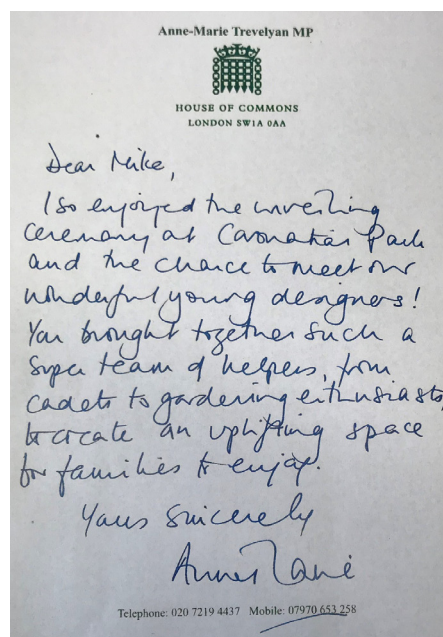 Anne-Marie Trevelyan MP
HOUSE OF COMMONS
LONDON SW1A 0AA
Dear Mike,
I so enjoyed the unveiling
ceremony at Coronation Park
and the chance to meet our
wonderful young designers!
You brought together such a
super team of helpers, from
cadets to gardening enthusiasts,
to create an uplifting space
for families to enjoy.
Yours sincerely
Anne-Marie
Telephone: 020 7219 4437 Mobile: 07970 653 258